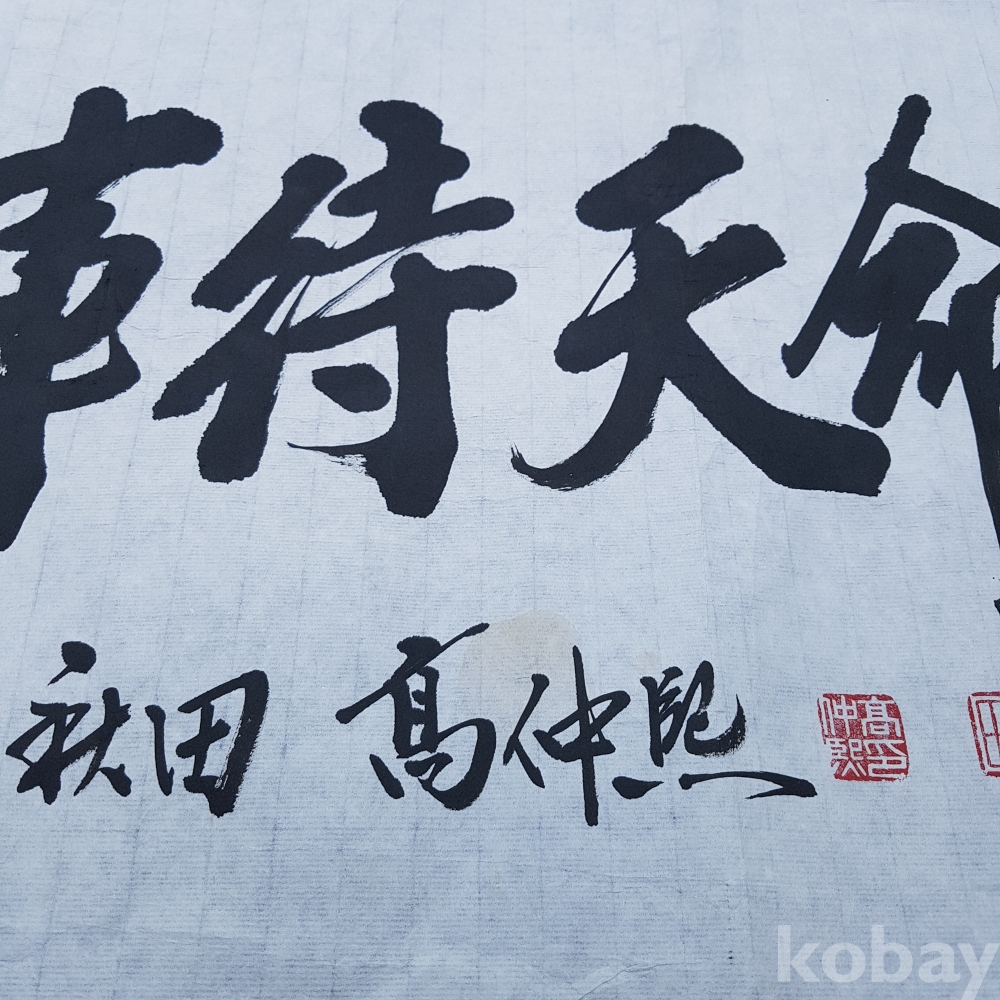 事待天命
秋田 高仲熙
高仲熙印
kobay